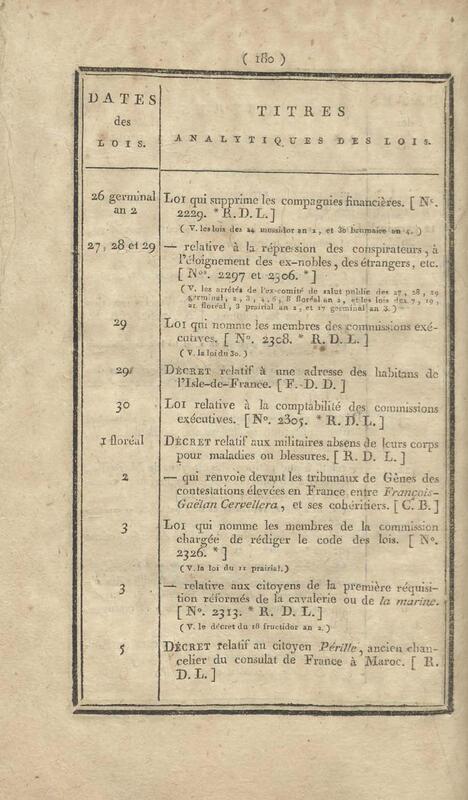 ( 180 )
DATES
des
LOIS.
TITRES
ANALYTIQUES DES LOIS.
26 germinal
an 2
LOI qui supprime les compagnies financières. [ N°.
2229. * R. D. L. ]
( V. les lois des 24 messidor an 2, et 30 brumaire an 4. )
27, 28 et 29
— relative à la répression des conspirateurs, à
l'éloignement des ex-nobles, des étrangers, etc.
[ Nos. 2297 et 2306. * ]
( V. les arrêtés de l'ex-comité de salut public des 27, 28, 29
germinal, 2, 3, 4, 6, 8 floréal an 2, et les lois des 7, 19,
21 floréal, 3 prairial an 2, et 17 germinal an 3. )
29
LOI qui nomme les membres des commissions exé-
cutives. [ N°. 2308. * R. D. L. ]
( V. la loi du 30. )
29
DÉCRET relatif à une adresse des habitans de
l'Isle-de-France. [ F. D. D. ]
30
LOI relative à la comptabilité des commissions
exécutives. [ N°. 2305. * R. D. L. ]
1 floréal
DÉCRET relatif aux militaires absens de leurs corps
pour maladies ou blessures. [ R. D. L. ]
2
— qui renvoie devant les tribunaux de Gènes des
contestations élevées en France entre François-
Gaëlan Cervellera, et ses cohéritiers. [ C. B. ]
3
LOI qui nomme les membres de la commission
chargée de rédiger le code des lois. [ N°.
2326. * ]
( V. la loi du 11 prairial. )
3
— relative aux citoyens de la première réquisi-
tion réformés de la cavalerie ou de la marine.
[ N°. 2313. * R. D. L. ]
( V. le décret du 18 fructidor an 2. )
5
DÉCRET relatif au citoyen Pérille, ancien chan-
celier du consulat de France à Maroc. [ R.
D. L. ]